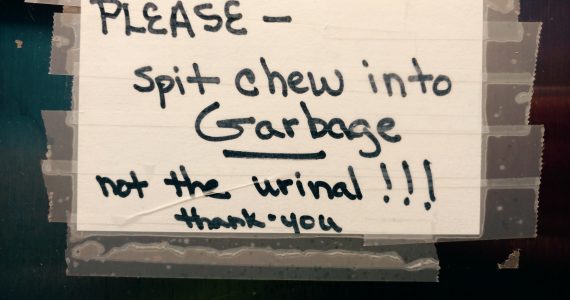 PLEASE –
spit chew into
Garbage
not the urinal !!!
thank-you